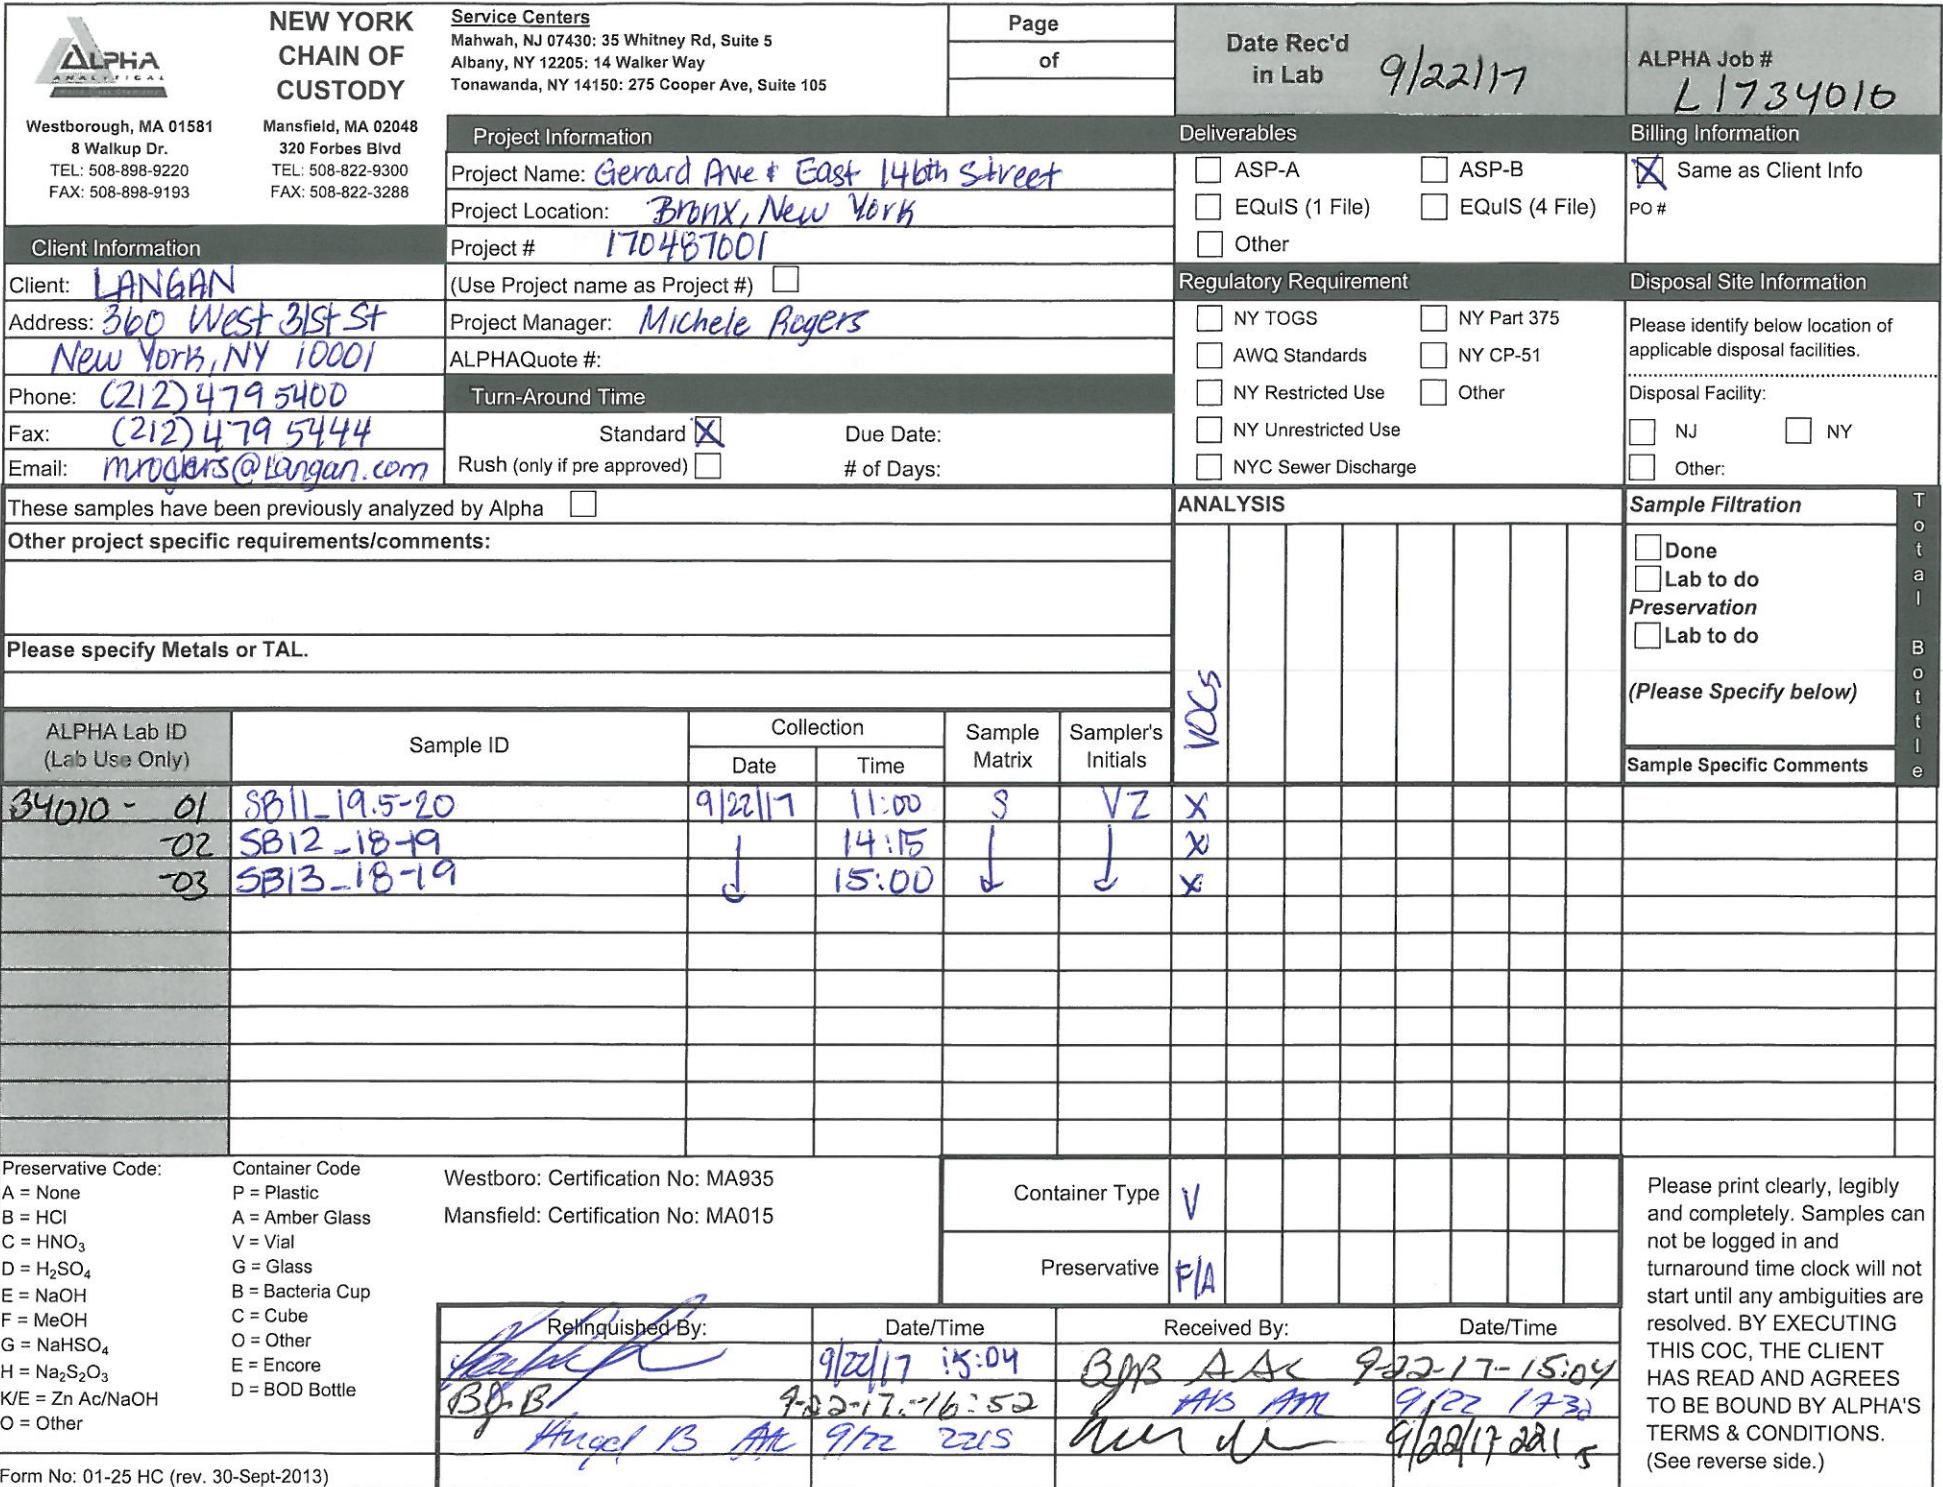 ALPHA
ANALYTICAL
NEW YORK
CHAIN OF
CUSTODY
Westborough, MA 01581
8 Walkup Dr.
TEL: 508-898-9220
FAX: 508-898-9193
Mansfield, MA 02048
320 Forbes Blvd
TEL: 508-822-9300
FAX: 508-822-3288
Service Centers
Mahwah, NJ 07430: 35 Whitney Rd, Suite 5
Albany, NY 12205: 14 Walker Way
Tonawanda, NY 14150: 275 Cooper Ave, Suite 105
Page
of
Date Rec'd
in Lab 9/22/17
ALPHA Job #
L1734010
Project Information
Project Name: Gerard Ave & East 146th Street
Project Location: Bronx, New York
Project # 170487001
(Use Project name as Project #)
Project Manager: Michele Rogers
ALPHAQuote #:
Client Information
Client: LANGAN
Address: 360 West 31st St
New York, NY 10001
Phone: (212) 479 5400
Fax: (212) 479 5444
Email: mrogers@Langan.com
Turn-Around Time
Standard X Due Date:
Rush (only if pre approved) # of Days:
Deliverables
ASP-A ASP-B
EQuIS (1 File) EQuIS (4 File)
Other
Billing Information
X Same as Client Info
PO #
Regulatory Requirement
NY TOGS NY Part 375
AWQ Standards NY CP-51
NY Restricted Use Other
NY Unrestricted Use
NYC Sewer Discharge
Disposal Site Information
Please identify below location of
applicable disposal facilities.
Disposal Facility:
NJ NY
Other:
These samples have been previously analyzed by Alpha
Other project specific requirements/comments:
Please specify Metals or TAL.
ANALYSIS
VOCs
Sample Filtration
Done
Lab to do
Preservation
Lab to do
(Please Specify below)
Sample Specific Comments
Total Bottle
ALPHA Lab ID
(Lab Use Only)
Sample ID
Collection
Date Time
Sample
Matrix
Sampler's
Initials
34010 - 01 SB11_19.5-20 9/22/17 11:00 S VZ X
-02 SB12_18-19 14:15 X
-03 SB13_18-19 15:00 X
Preservative Code:
A = None
B = HCl
C = HNO3
D = H2SO4
E = NaOH
F = MeOH
G = NaHSO4
H = Na2S2O3
K/E = Zn Ac/NaOH
O = Other
Container Code
P = Plastic
A = Amber Glass
V = Vial
G = Glass
B = Bacteria Cup
C = Cube
O = Other
E = Encore
D = BOD Bottle
Westboro: Certification No: MA935
Mansfield: Certification No: MA015
Container Type V
Preservative F/A
Relinquished By: Date/Time Received By: Date/Time
9/22/17 15:04 9-22-17-15:04
9-22-17-16:52 9/22 1730
Angel B 9/22 2215 9/22/17 2215
Please print clearly, legibly
and completely. Samples can
not be logged in and
turnaround time clock will not
start until any ambiguities are
resolved. BY EXECUTING
THIS COC, THE CLIENT
HAS READ AND AGREES
TO BE BOUND BY ALPHA'S
TERMS & CONDITIONS.
(See reverse side.)
Form No: 01-25 HC (rev. 30-Sept-2013)